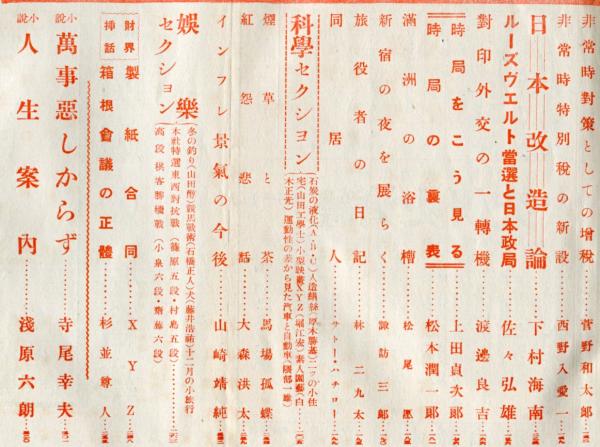 非常時對策としての增稅……菅野和太郎
非常時特別稅の新設……西野入愛一
日本改造論……下村海南
ルーズヴエルト當選と日本政局……佐々弘雄
對印外交の一轉機……渡邊良吉
時局をこう見る……上田貞次郎
時局の裏表……松本潤一郎
滿洲の浴槽……松尾
新宿の夜を展らく……諏訪三郎
旅役者の日記……林二九太
同居人……サトー・ハチロー
科學セクシヨン
石炭の液化(A・B・C)人造絹絲(厚木勝基)二つの小住
宅(山田工學士)小型映畫XYZ(堀江宏)素人園藝(白
木正光)運動性の差から見た汽車と自動車(隈部一雄)
煙草と茶……馬場孤蝶
紅怨悲話……大森洪太
インフレ景氣の今後……山崎靖純
娛樂セクシヨン
冬の釣り(山田幣)競馬戰術(石橋正人)犬(藤井浩祐)十二月の小旅行
本社特選東西對抗戰(篠原五段・村島五段)
高段棋客勝繼戰(小泉六段・齋藤六段)
財界
製紙合同……XYZ
揷話
箱根會議の正體……杉並尊人
小說
萬事惡しからず……寺尾幸夫
小說
人生案內……淺原六朗